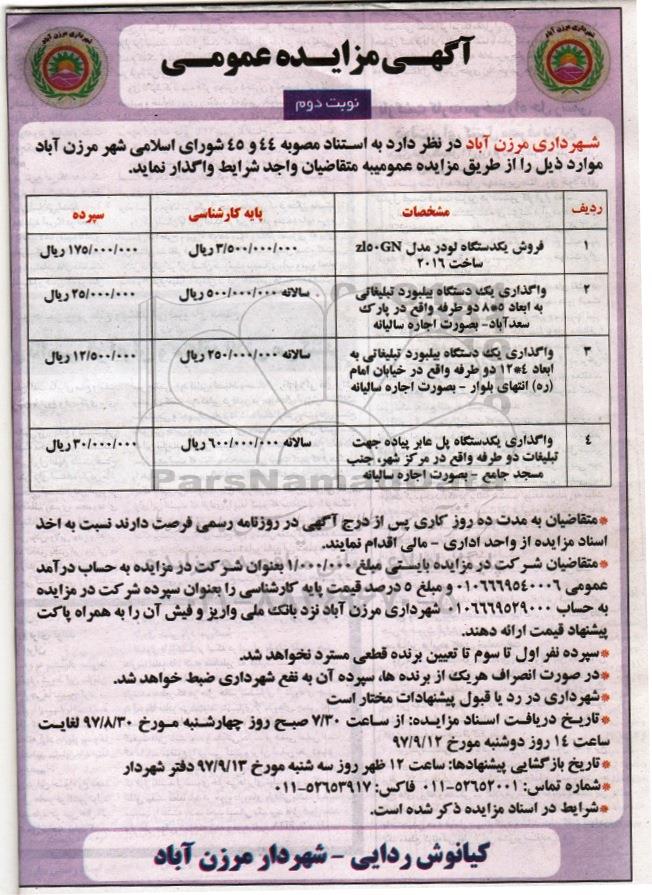 آگهی مزایده عمومی
نوبت دوم
شهرداری مرزن آباد در نظر دارد به استناد مصوبه ۴۴ و ۴۵ شورای اسلامی شهر مرزن آباد
موارد ذیل را از طریق مزایده عمومیبه متقاضیان واجد شرایط واگذار نماید.
ردیف مشخصات پایه کارشناسی سپرده
۱ فروش یکدستگاه لودر مدل zl50GN ۳/۵۰۰/۰۰۰/۰۰۰ ریال ۱۷۵/۰۰۰/۰۰۰ ریال
ساخت ۲۰۱۶
۲ واگذاری یک دستگاه بیلبورد تبلیغاتی سالانه ۵۰۰/۰۰۰/۰۰۰ ریال ۲۵/۰۰۰/۰۰۰ ریال
به ابعاد ۵*۸ دو طرفه واقع در پارک
سعدآباد- بصورت اجاره سالیانه
۳ واگذاری یک دستگاه بیلبورد تبلیغاتی به سالانه ۲۵۰/۰۰۰/۰۰۰ ریال ۱۲/۵۰۰/۰۰۰ ریال
ابعاد ۴*۱۲ دو طرفه واقع در خیابان امام
(ره) انتهای بلوار - بصورت اجاره سالیانه
۴ واگذاری یکدستگاه پل عابر پیاده جهت سالانه ۶۰۰/۰۰۰/۰۰۰ ریال ۳۰/۰۰۰/۰۰۰ ریال
تبلیغات دو طرفه واقع در مرکز شهر، جنب
مسجد جامع - بصورت اجاره سالیانه
ParsNama
*متقاضیان به مدت ده روز کاری پس از درج آگهی در روزنامه رسمی فرصت دارند نسبت به اخذ
اسناد مزایده از واحد اداری - مالی اقدام نمایند.
*متقاضیان شرکت در مزایده بایستی مبلغ ۱/۰۰۰/۰۰۰ بعنوان شرکت در مزایده به حساب درآمد
عمومی ۰۱۰۶۶۶۹۵۴۰۰۰۶ و مبلغ ۵ درصد قیمت پایه کارشناسی را بعنوان سپرده شرکت در مزایده
به حساب ۰۱۰۶۶۶۹۵۲۹۰۰۰ شهرداری مرزن آباد نزد بانک ملی واریز و فیش آن را به همراه پاکت
پیشنهاد قیمت ارائه دهند.
*سپرده نفر اول تا سوم تا تعیین برنده قطعی مسترد نخواهد شد.
*در صورت انصراف هریک از برنده ها، سپرده آن به نفع شهرداری ضبط خواهد شد.
*شهرداری در رد یا قبول پیشنهادات مختار است
*تاریخ دریافت اسناد مزایده: از ساعت ۷/۳۰ صبح روز چهارشنبه مورخ ۹۷/۸/۳۰ لغایت
ساعت ۱۴ روز دوشنبه مورخ ۹۷/۹/۱۲
*تاریخ بازگشایی پیشنهادها: ساعت ۱۲ ظهر روز سه شنبه مورخ ۹۷/۹/۱۳ دفتر شهردار
*شماره تماس: ۵۲۶۵۲۰۰۱-۰۱۱ فاکس: ۵۲۶۵۳۹۱۷-۰۱۱
*شرایط در اسناد مزایده ذکر شده است.
کیانوش ردایی - شهردار مرزن آباد